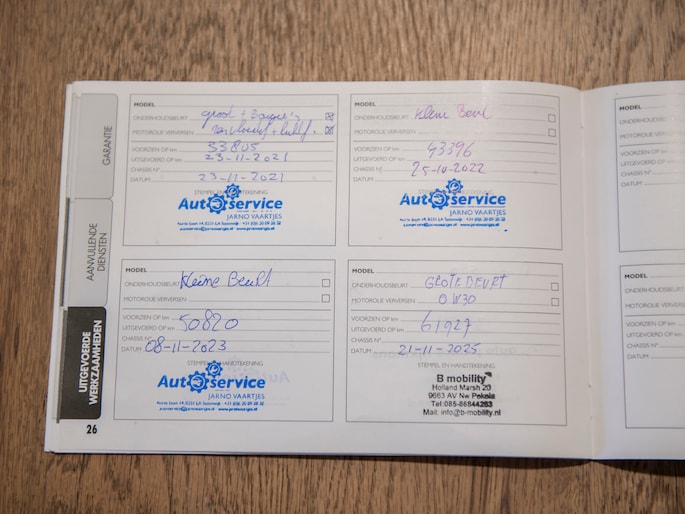 GARANTIE
AANVULLENDE
DIENSTEN
UITGEVOERDE
WERKZAAMHEDEN
MODEL
ONDERHOUDSBEURT groot +
MOTOROLIE VERVERSEN
VOORZIEN OP km 33805
UITGEVOERD OP km 23-11-2021
CHASSIS Nº
DATUM 23-11-2021
STEMPEL EN HANDTEKENING
Autoservice
JARNO VAARTJES
MODEL
ONDERHOUDSBEURT Kleine Beurt
MOTOROLIE VERVERSEN
VOORZIEN OP km 43396
UITGEVOERD OP km
CHASSIS Nº 25-10-2022
DATUM
STEMPEL EN HANDTEKENING
Autoservice
JARNO VAARTJES
MODEL
ONDERHOUDSBEURT Kleine Beurt
MOTOROLIE VERVERSEN
VOORZIEN OP km 50820
UITGEVOERD OP km
CHASSIS Nº
DATUM 08-11-2023
STEMPEL EN HANDTEKENING
Autoservice
JARNO VAARTJES
MODEL
ONDERHOUDSBEURT GROTE BEURT
MOTOROLIE VERVERSEN 0W30
VOORZIEN OP km
UITGEVOERD OP km 61927
CHASSIS Nº
DATUM 21-11-2025
STEMPEL EN HANDTEKENING
B mobility
Holland Marsh 20
9663 AV Nw Pekela
Tel:085-86844263
Mail: info@b-mobility.nl
26
MODEL
ONDERHOUDSB
MOTOROLIE VE
VOORZIEN OP
UITGEVOERD O
CHASSIS Nº
DATUM
MODEL
ONDERHOUDS
MOTOROLIE VER
VOORZIEN OP
UITGEVOERD
CHASSIS
DATUM